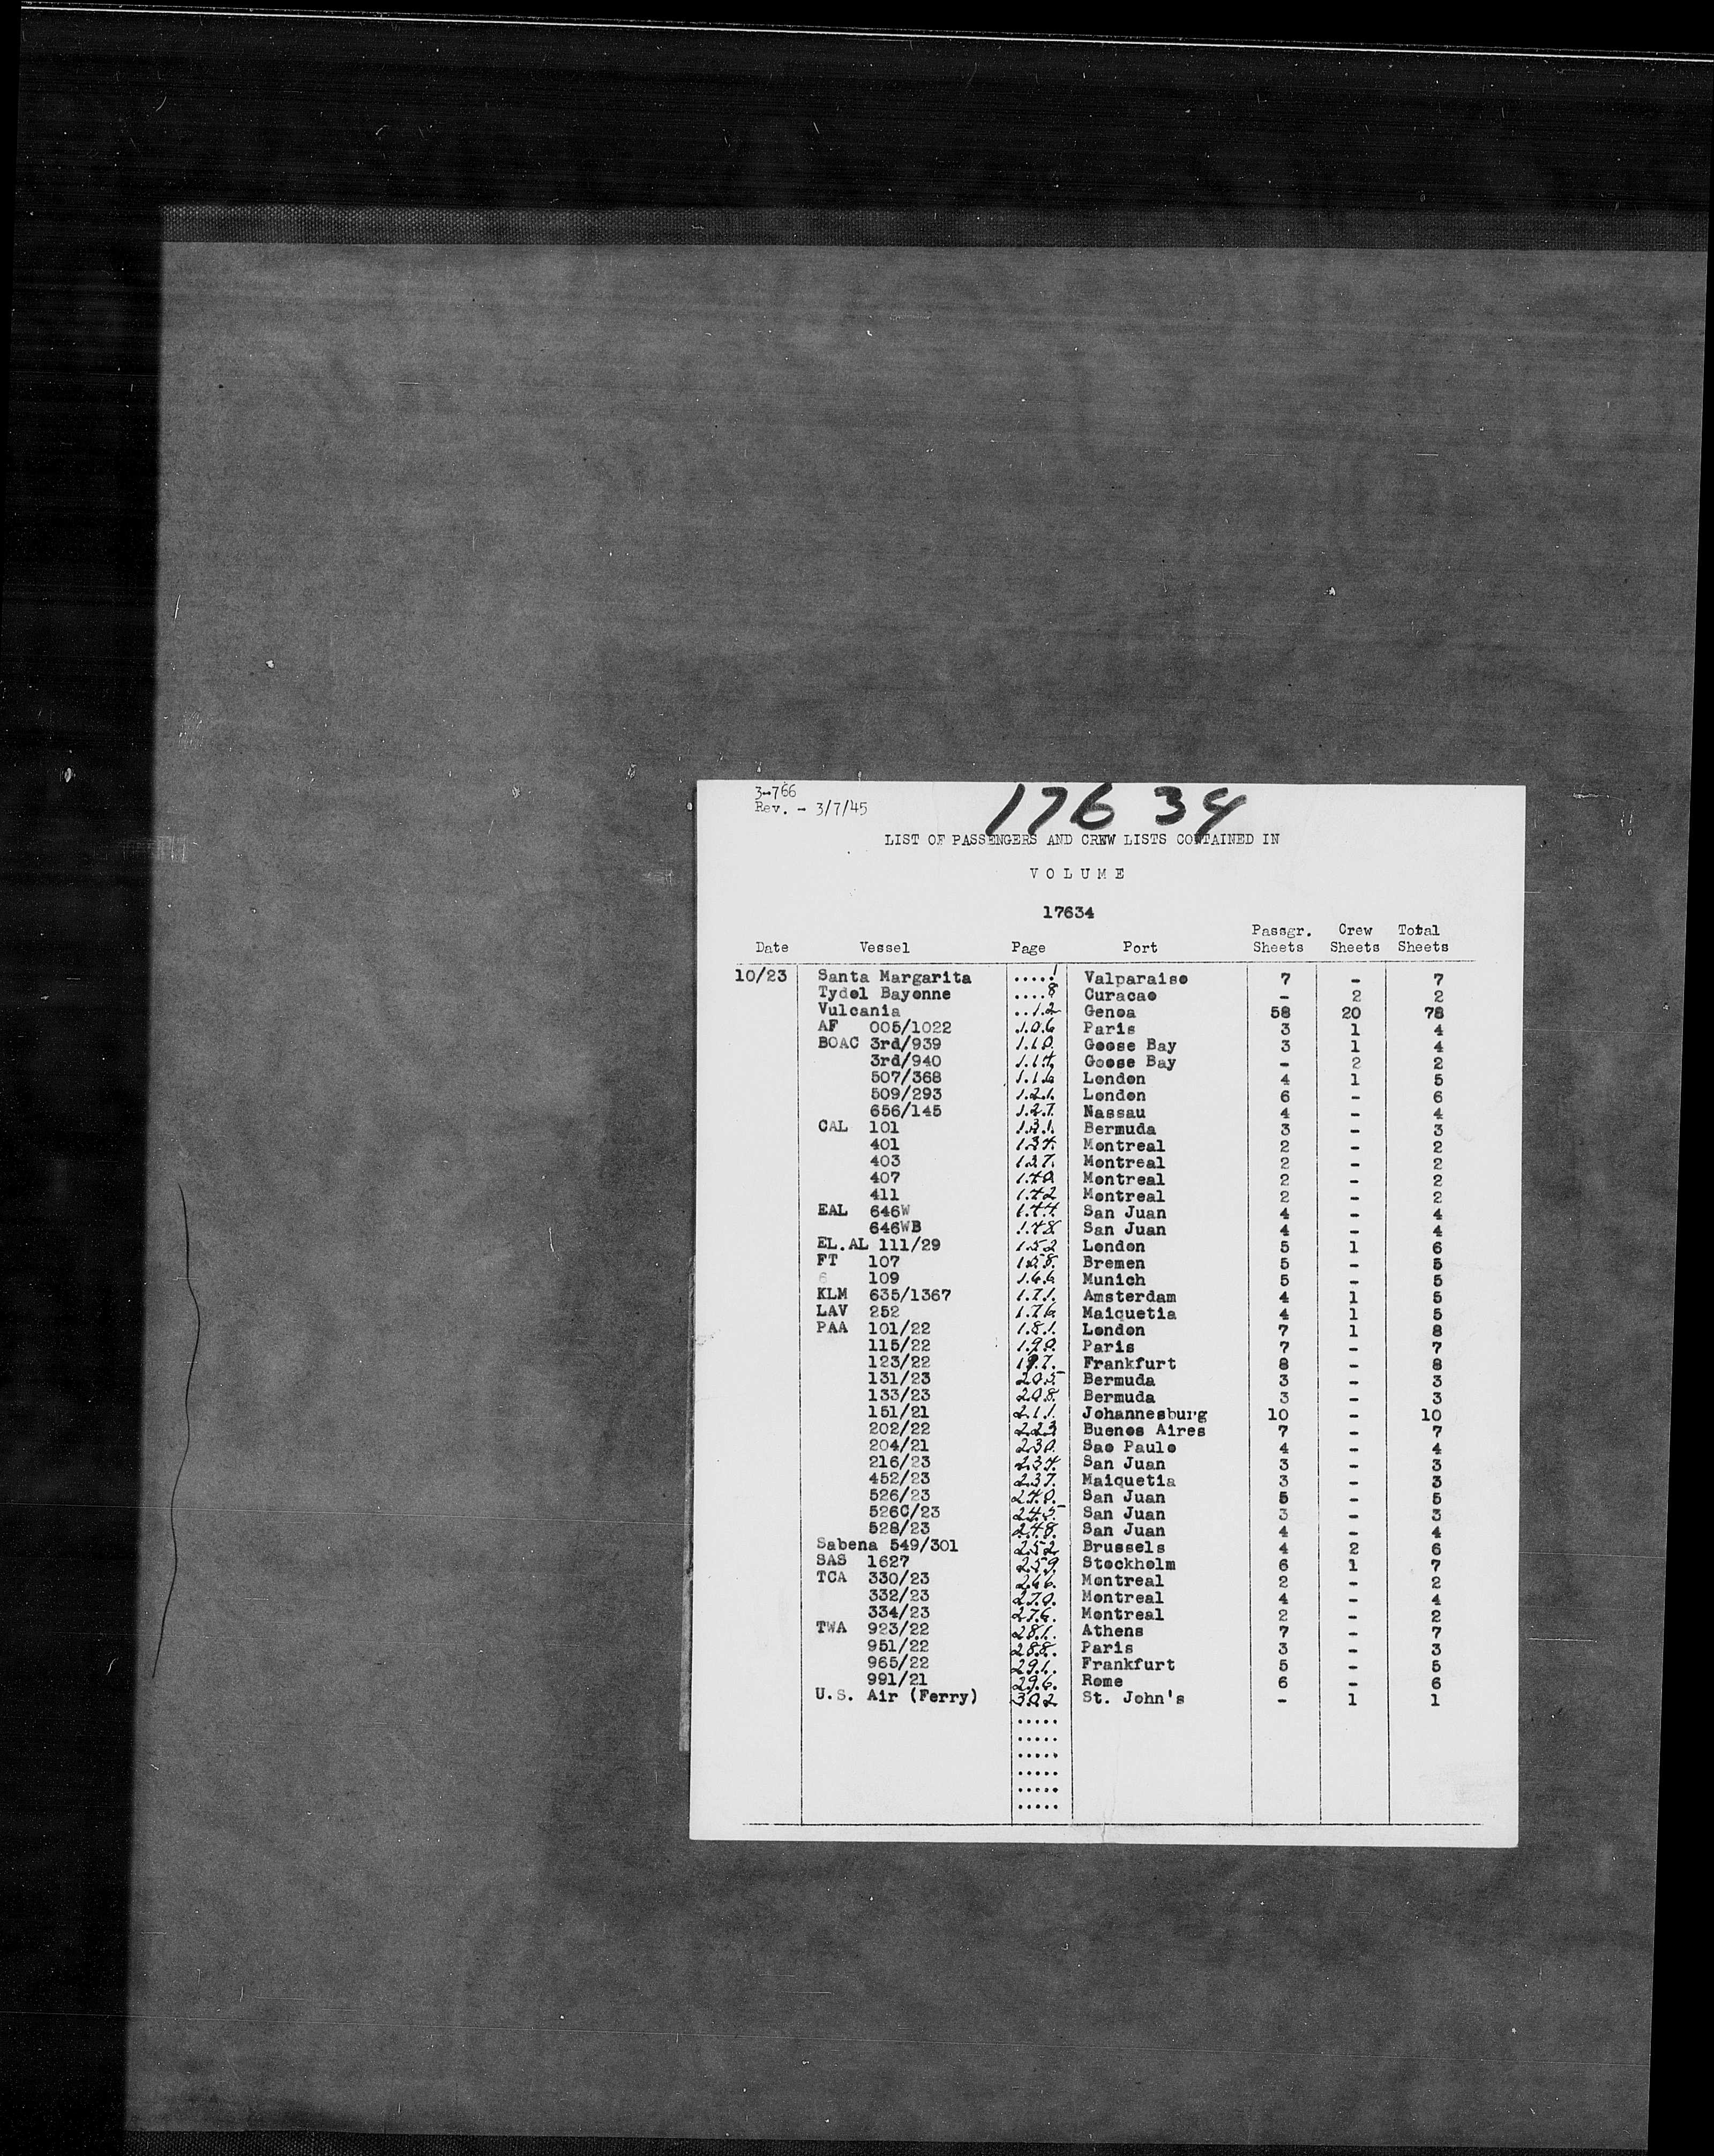 3-766
Rev. - 3/7/45
17634
LIST OF PASSENGERS AND CREW LISTS CONTAINED IN
VOLUME
17634
Date Vessel Page Port Passgr. Sheets Crew Sheets Total Sheets
10/23 Santa Margarita .....1 Valparaiso 7 - 7
Tydol Bayonne ....8 Curacao - 2 2
Vulcania ..12 Genoa 58 20 78
AF 005/1022 106 Paris 3 1 4
BOAC 3rd/939 110 Goose Bay 3 1 4
3rd/940 114 Goose Bay - 2 2
507/368 116 London 4 1 5
509/293 121 London 6 - 6
656/145 127 Nassau 4 - 4
CAL 101 131 Bermuda 3 - 3
401 134 Montreal 2 - 2
403 137 Montreal 2 - 2
407 140 Montreal 2 - 2
411 142 Montreal 2 - 2
EAL 646W 144 San Juan 4 - 4
646WB 148 San Juan 4 - 4
EL.AL 111/29 152 London 5 1 6
FT 107 158 Bremen 5 - 5
6 109 166 Munich 5 - 5
KLM 635/1367 171 Amsterdam 4 1 5
LAV 252 176 Maiquetia 4 1 5
PAA 101/22 181 London 7 1 8
115/22 190 Paris 7 - 7
123/22 197 Frankfurt 8 - 8
131/23 205 Bermuda 3 - 3
133/23 208 Bermuda 3 - 3
151/21 211 Johannesburg 10 - 10
202/22 223 Buenos Aires 7 - 7
204/21 230 Sao Paulo 4 - 4
216/23 234 San Juan 3 - 3
452/23 237 Maiquetia 3 - 3
526/23 240 San Juan 5 - 5
526C/23 245 San Juan 3 - 3
528/23 248 San Juan 4 - 4
Sabena 549/301 252 Brussels 4 2 6
SAS 1627 259 Stockholm 6 1 7
TCA 330/23 266 Montreal 2 - 2
332/23 270 Montreal 4 - 4
334/23 276 Montreal 2 - 2
TWA 923/22 281 Athens 7 - 7
951/22 288 Paris 3 - 3
965/22 291 Frankfurt 5 - 5
991/21 296 Rome 6 - 6
U.S. Air (Ferry) 302 St. John's - 1 1
.....
.....
.....
.....
.....
.....